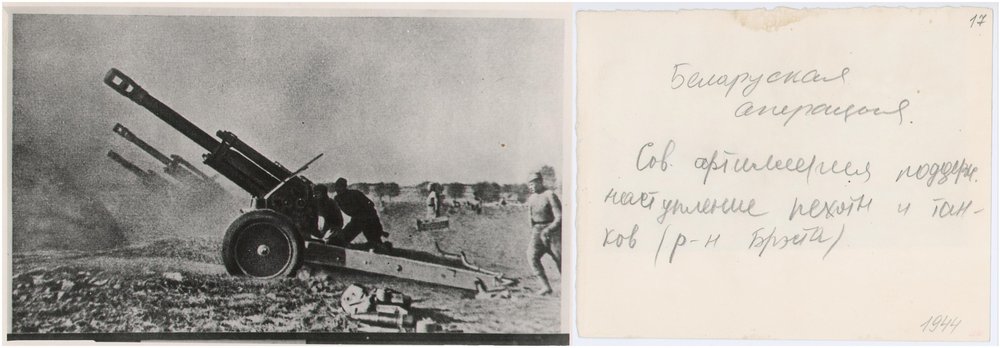 17
Беларуская
аперацыя.
Сов. артиллерия поддерж.
наступление пехоты и тан-
ков (р-н Брэста)
1944